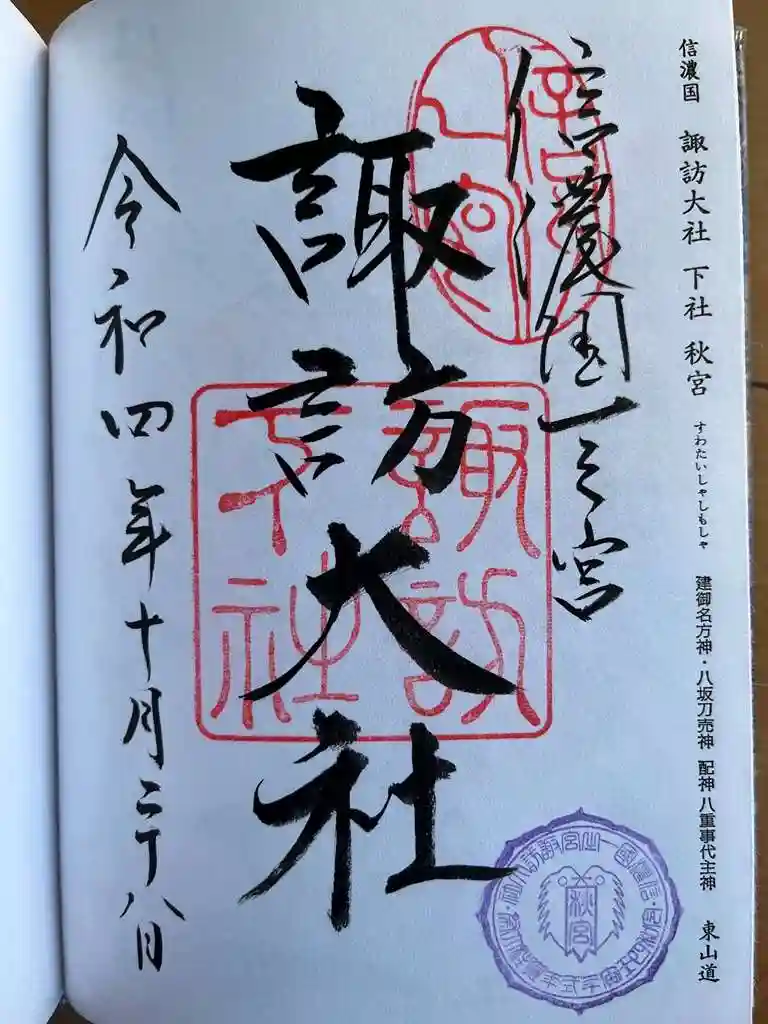 信濃国 諏訪大社 下社 秋宮 すわたいしゃしもしゃ 建御名方神・八坂刀売神 配神 八重事代主神 東山道
信濃国一之宮
諏訪大社
令和四年十月二十八日
諏訪
大社
秋宮